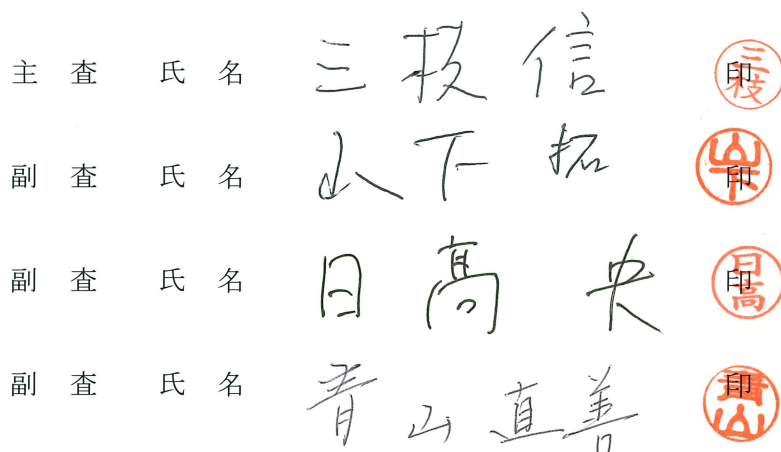 主査 氏名 三枝 信 印 三枝
副査 氏名 山下 拓 印 山下
副査 氏名 日髙 央 印 日高
副査 氏名 青山 直善 印 青山